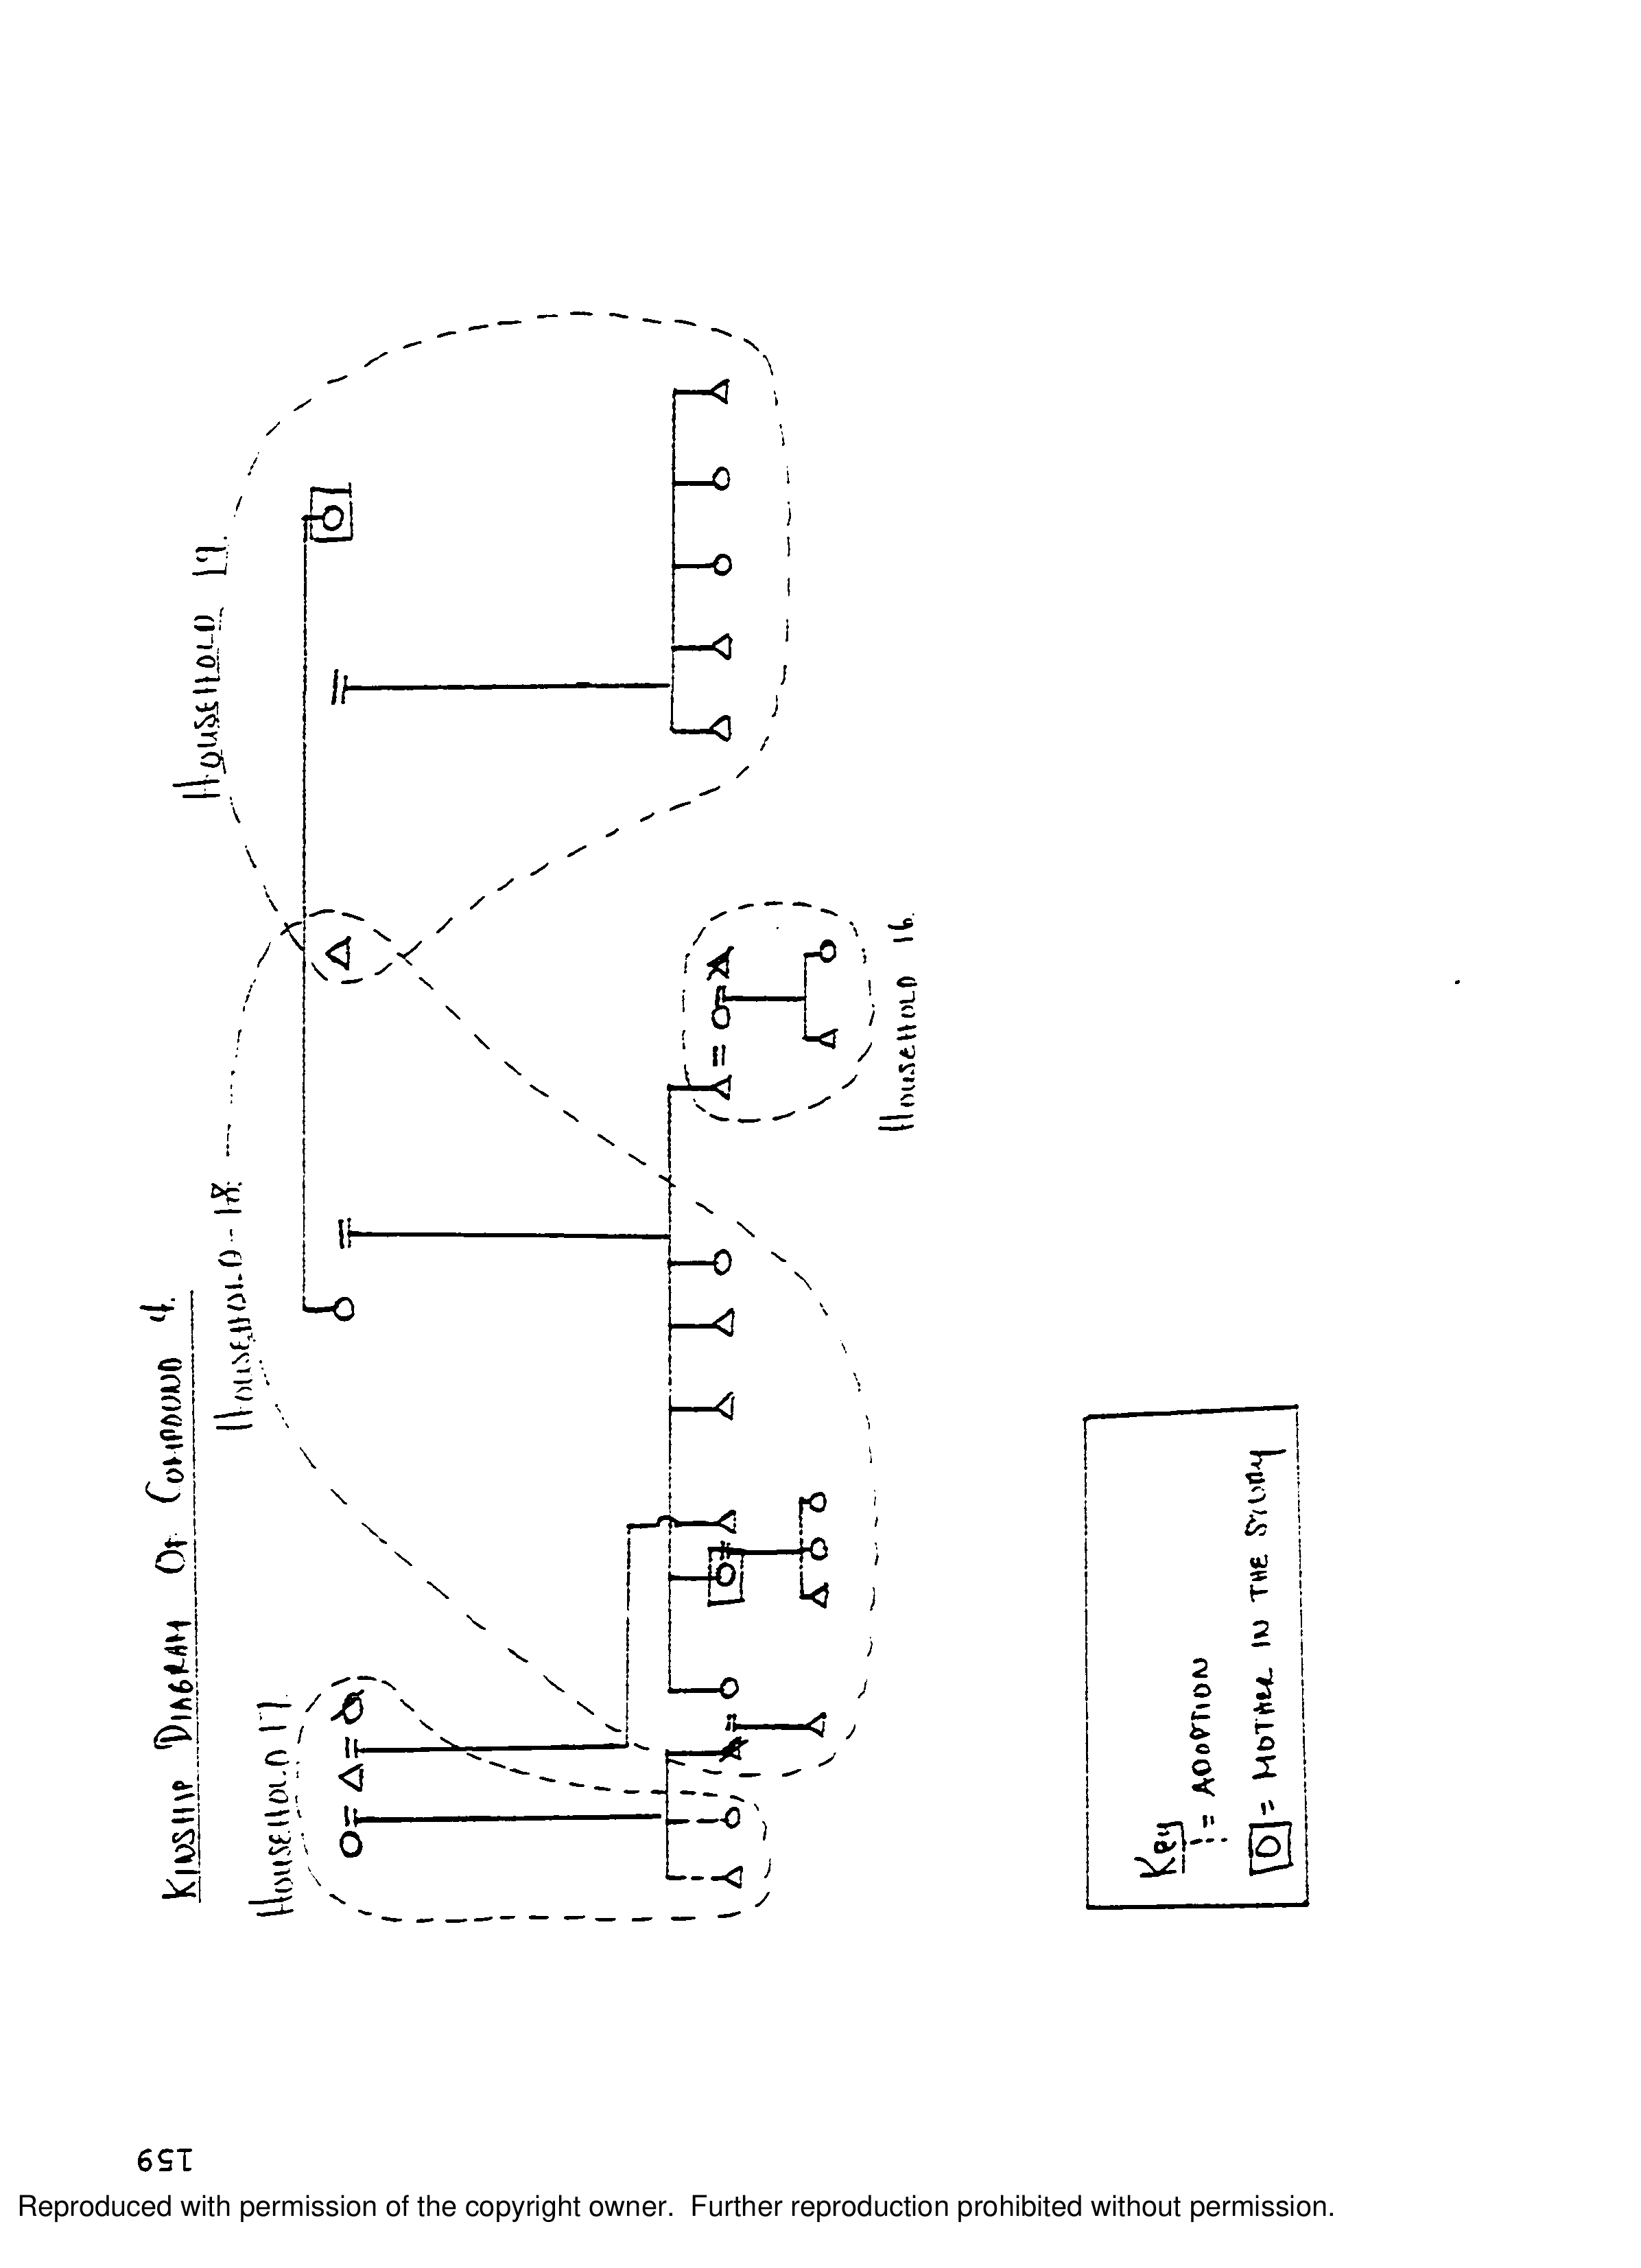 KINSHIP DIAGRAM OF COMPOUND 4.
HOUSEHOLD 17.
HOUSEHOLD 18.
HOUSEHOLD 19.
HOUSEHOLD 16.
Key
= ADOPTION
= MOTHER IN THE STUDY
159
Reproduced with permission of the copyright owner. Further reproduction prohibited without permission.